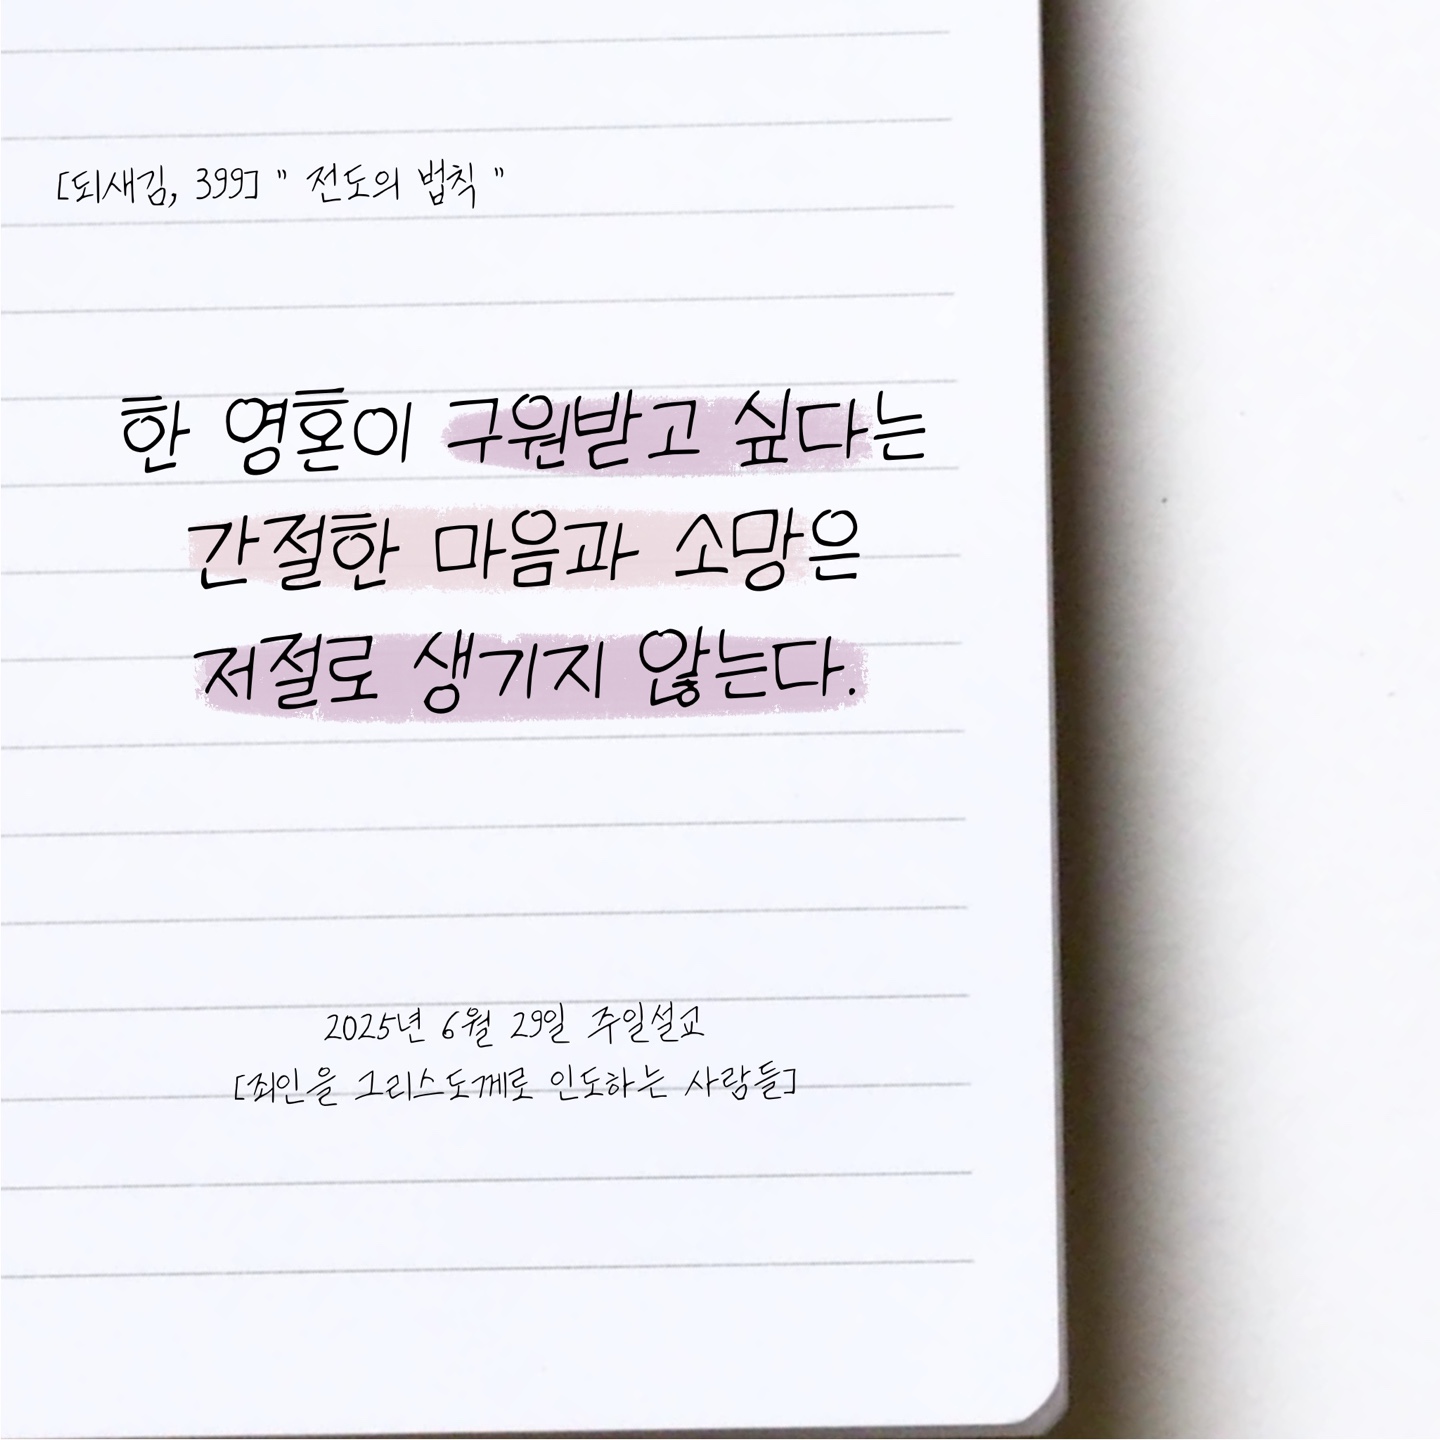 [되새김, 399] " 전도의 법칙 "
한 영혼이 구원받고 싶다는
간절한 마음과 소망은
저절로 생기지 않는다.
2025년 6월 29일 주일설교
[죄인을 그리스도께로 인도하는 사람들]